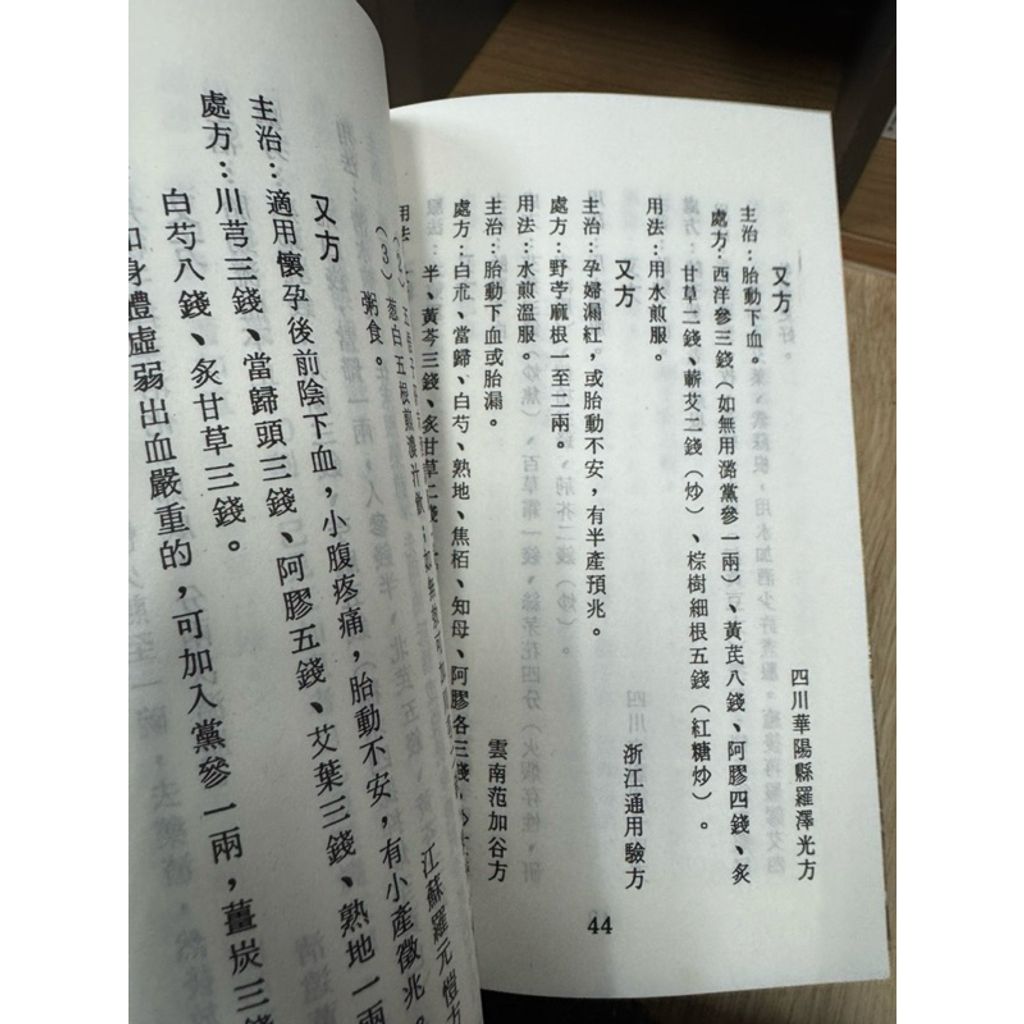 又方
四川華陽縣羅澤光方
主治：胎動下血。
處方：西洋參三錢（如無用潞黨參一兩）、黃芪八錢、阿膠四錢、炙
甘草二錢、蘄艾二錢（炒）、棕樹細根五錢（紅糖炒）。
用法：用水煎服。
又方
浙江通用驗方
主治：孕婦漏紅，或胎動不安，有半產預兆。
處方：野苧麻根一至二兩。
用法：水煎溫服。
主治：胎動下血或胎漏。
雲南范加谷方
處方：白朮、當歸、白芍、熟地、焦栢、知母、阿膠各三錢、
半、黃芩三錢、炙甘草二錢
用法
（3）葱白五根煎濃汁
粥食。
又方
江蘇羅元愷方
主治：適用懷孕後前陰下血，小腹疼痛，胎動不安，有小產徵兆。
處方：川芎三錢、當歸頭三錢、阿膠五錢、艾葉三錢、熟地一兩
白芍八錢、炙甘草三錢。
身體虛弱出血嚴重的，可加入黨參一兩，薑炭三錢
44